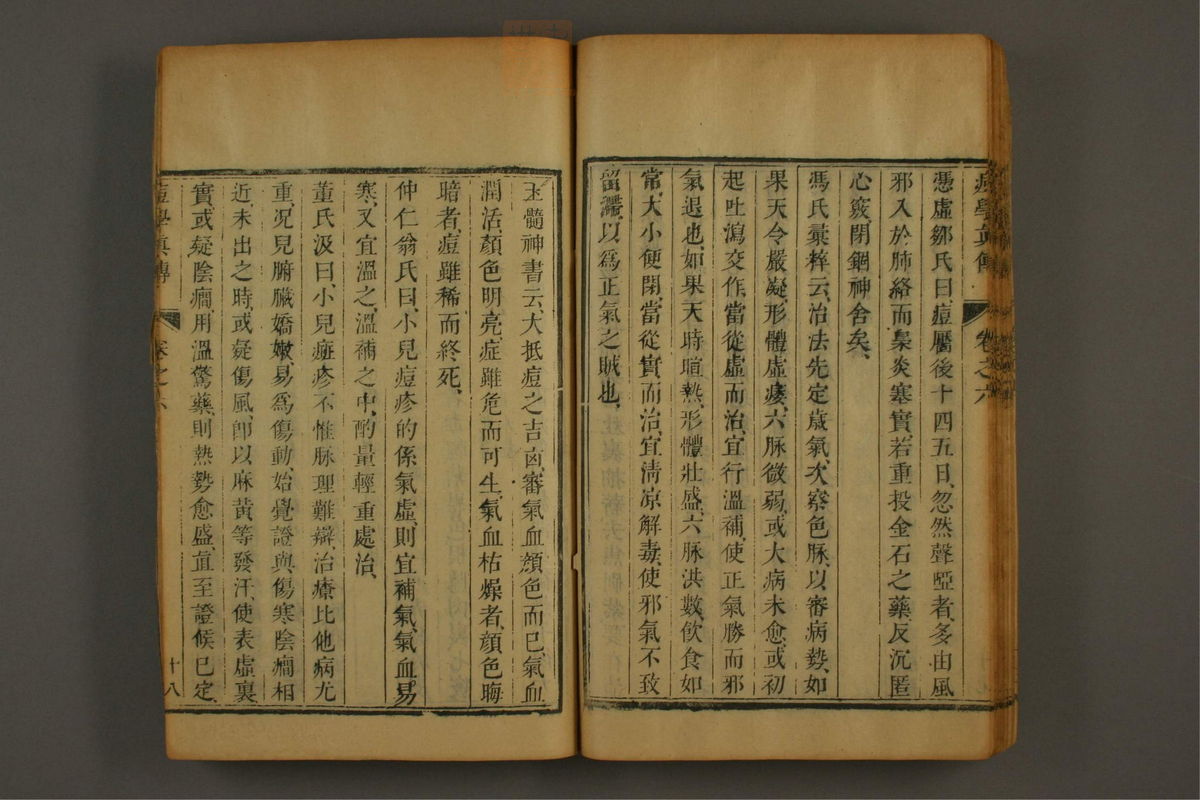 痘學真傳 卷之六
憑虛鄒氏曰痘靨後十四五日、忽然聲啞者、多由風
邪入於肺絡、而梟炎塞實、若重投金石之藥、反沉匿
心竅、閉錮神舍矣、
馮氏彙粹云、治法先定歲氣、次察色脉、以審病勢、如
果天令嚴凝、形體虛痿、六脉微弱、或大病未愈、或初
起吐瀉交作、當從虛而治、宜行溫補、使正氣勝而邪
氣退也、如果天時暄熱、形體壯盛、六脉洪數、飲食如
常、大小便閉、當從實而治、宜淸凉解毒、使邪氣不致
留滯、以爲正氣之賊也、
玉髓神書云、大抵痘之吉凶、審氣血顔色而已、氣血
潤活、顔色明亮、症雖危而可生、氣血枯燥者、顔色晦
暗者、痘雖稀而終死、
仲仁翁氏曰、小兒痘疹的係氣虛、則宜補氣、氣血易
寒、又宜溫之、溫補之中、酌量輕重處治、
董氏汲曰、小兒痲疹、不惟脉理難辯、治療比他病尤
重、况兒腑臟嬌嫩、易爲傷動、始覺證與傷寒陰癎相
近、未出之時、或疑傷風、卽以麻黄等發汗、使表虛裏
實、或疑陰癎、用溫驚藥、則熱勢愈盛、直至證候已定、
痘學真傳 卷之六 十八